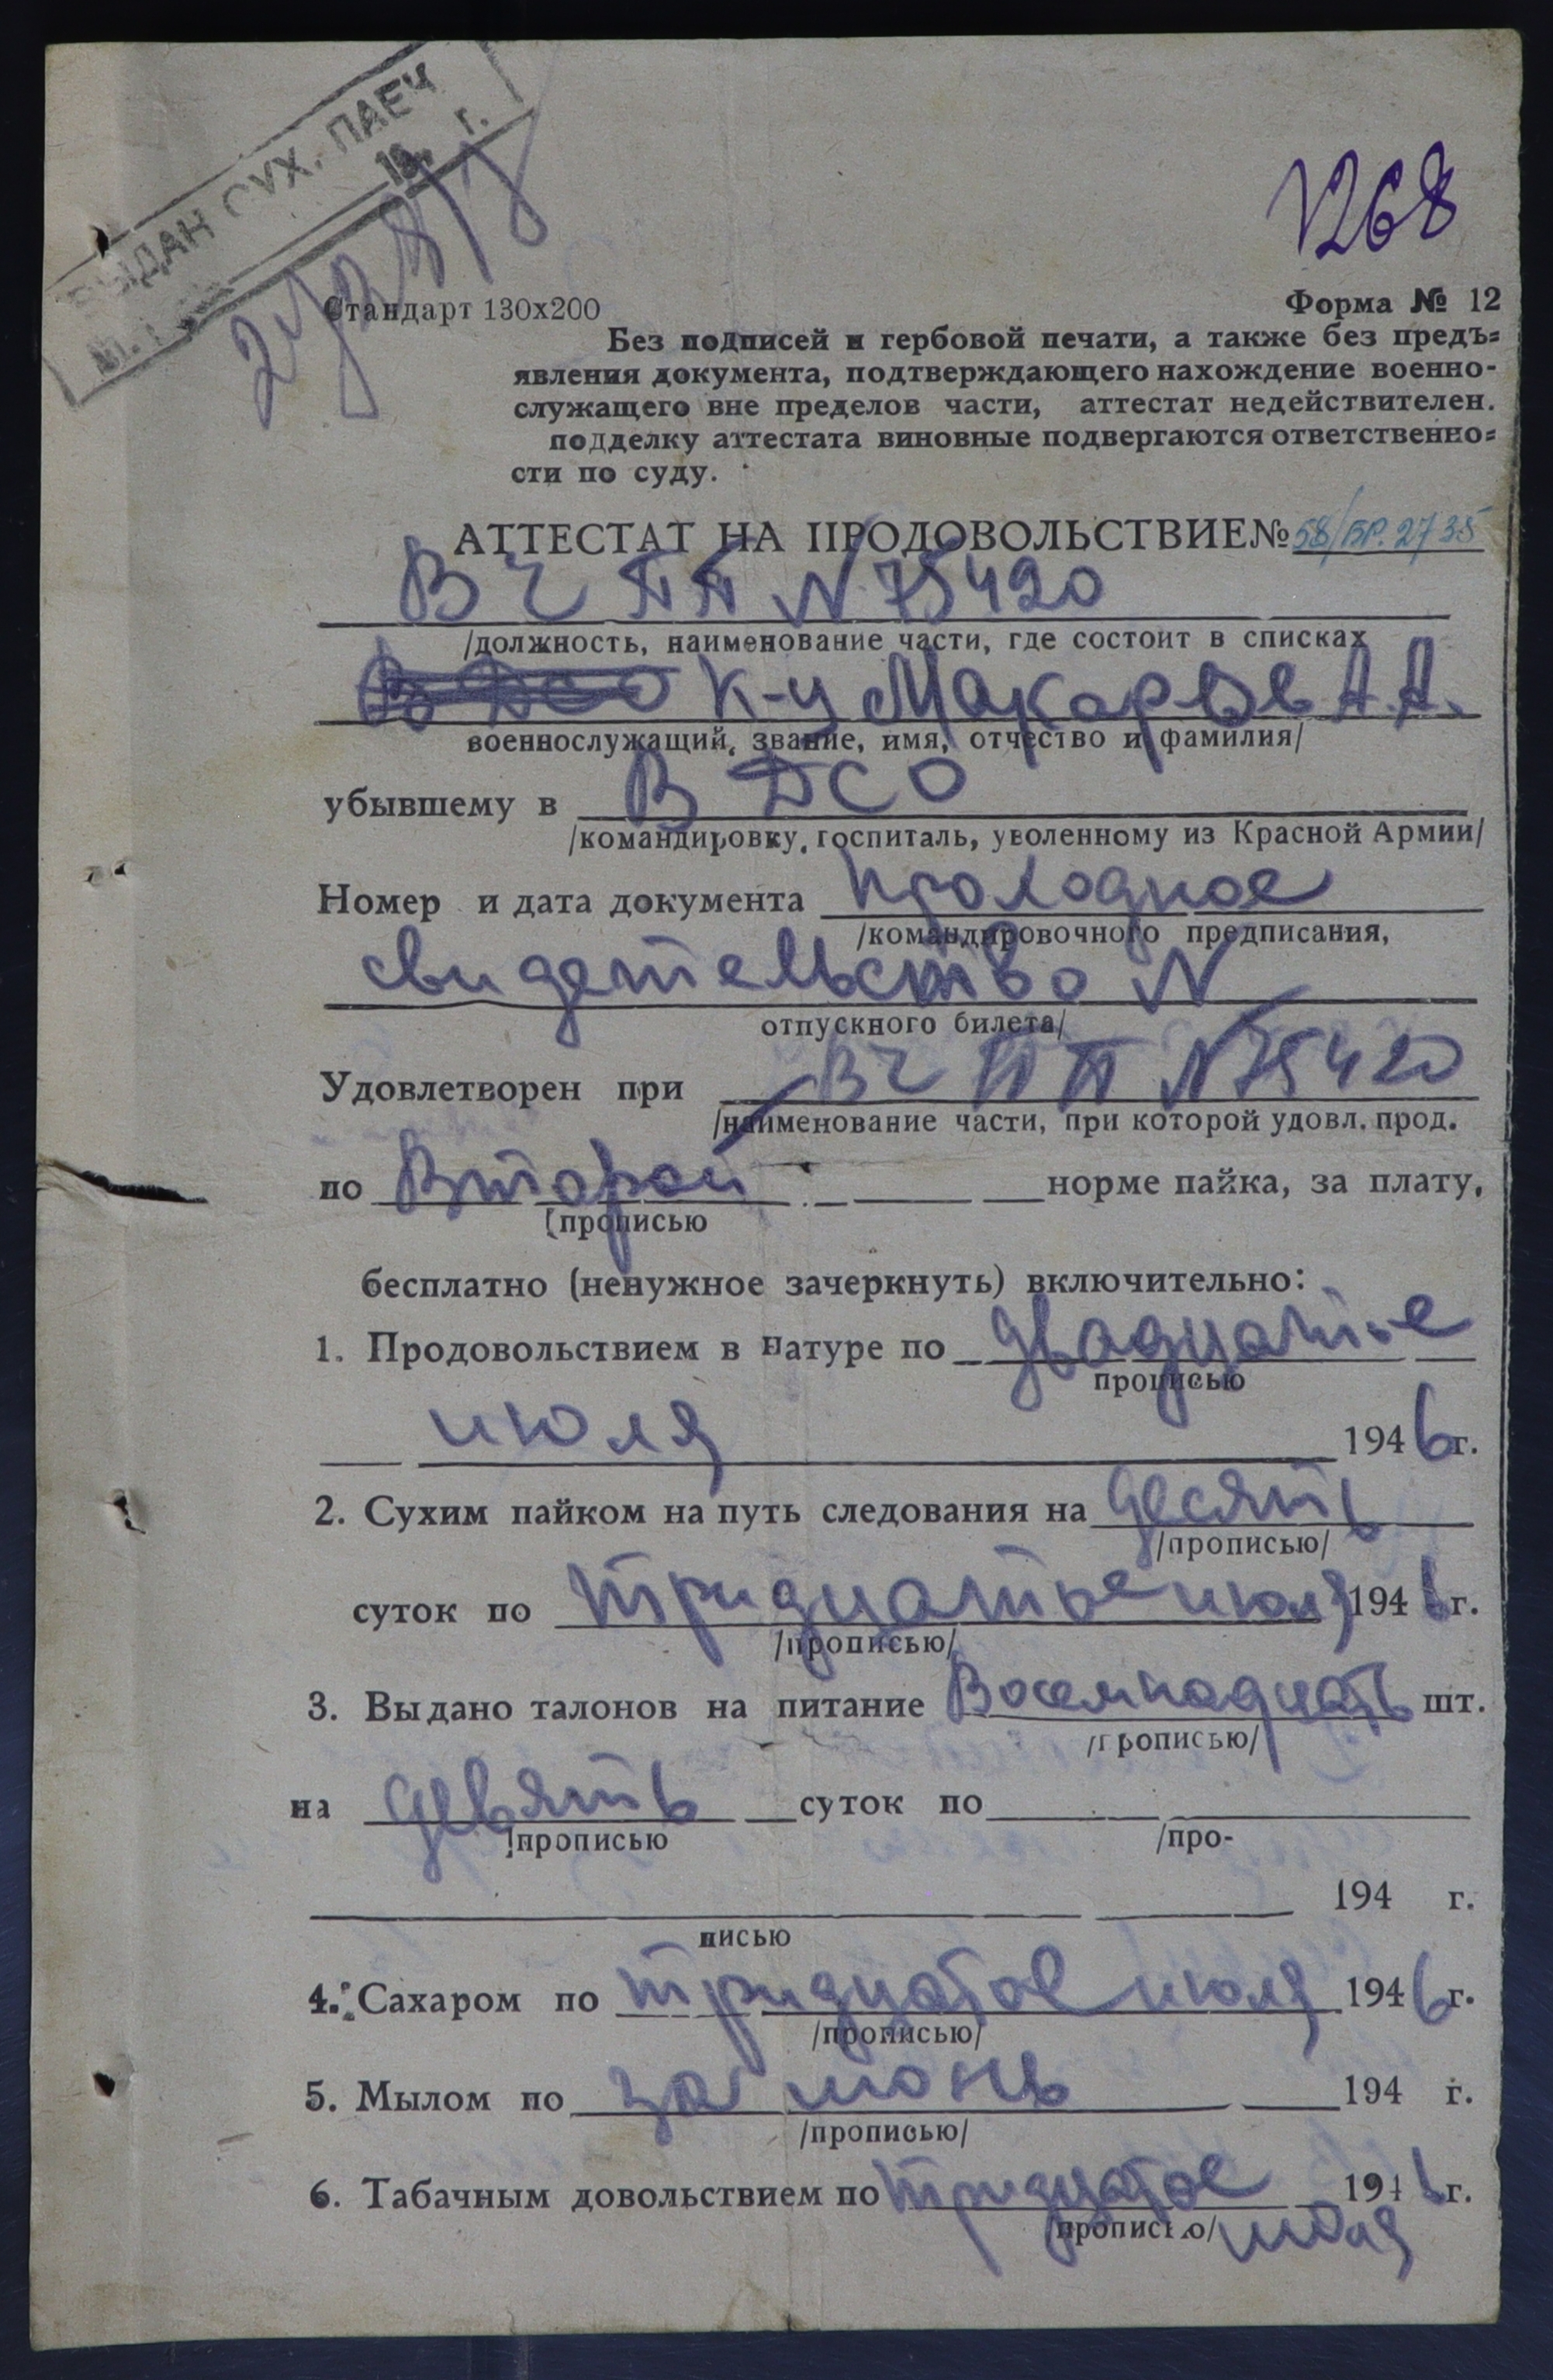 ВЫДАН СУХ. ПАЕЧ
19 г.
1268
Стандарт 130x200
Форма № 12
Без подписей и гербовой печати, а также без предъ=
явления документа, подтверждающего нахождение военно-
служащего вне пределов части, аттестат недействителен.
подделку аттестата виновные подвергаются ответственно=
сти по суду.
АТТЕСТАТ НА ПРОДОВОЛЬСТВИЕ № 58/БР. 2735
В Ч ПП N 75420
/должность, наименование части, где состоит в списках
К-у Макаров А.А.
военнослужащий, звание, имя, отчество и фамилия/
убывшему в В ДСО
/командировку, госпиталь, уволенному из Красной Армии/
Номер и дата документа проходное
/командировочного предписания,
свидетельство N
отпускного билета/
Удовлетворен при ВЧ ПП N75420
/наименование части, при которой удовл. прод.
по Второй норме пайка, за плату,
[прописью
бесплатно (ненужное зачеркнуть) включительно:
1. Продовольствием в натуре по двадцатое
прописью
июля 1946 г.
2. Сухим пайком на путь следования на десять
/прописью/
суток по тридцатое июля 1946 г.
/прописью/
3. Выдано талонов на питание Восемнадцать шт.
/прописью/
на девять суток по
/прописью /про-
194 г.
писью
4. Сахаром по тридцатое июля 1946 г.
/прописью/
5. Мылом по за июнь 194 г.
/прописью/
6. Табачным довольствием по тридцатое 1946 г.
/прописью/ июля